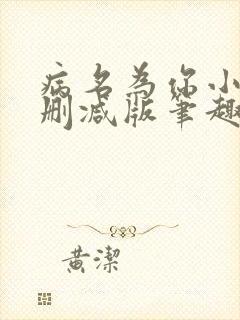 病名为你小
删减版笔趣
黄潔